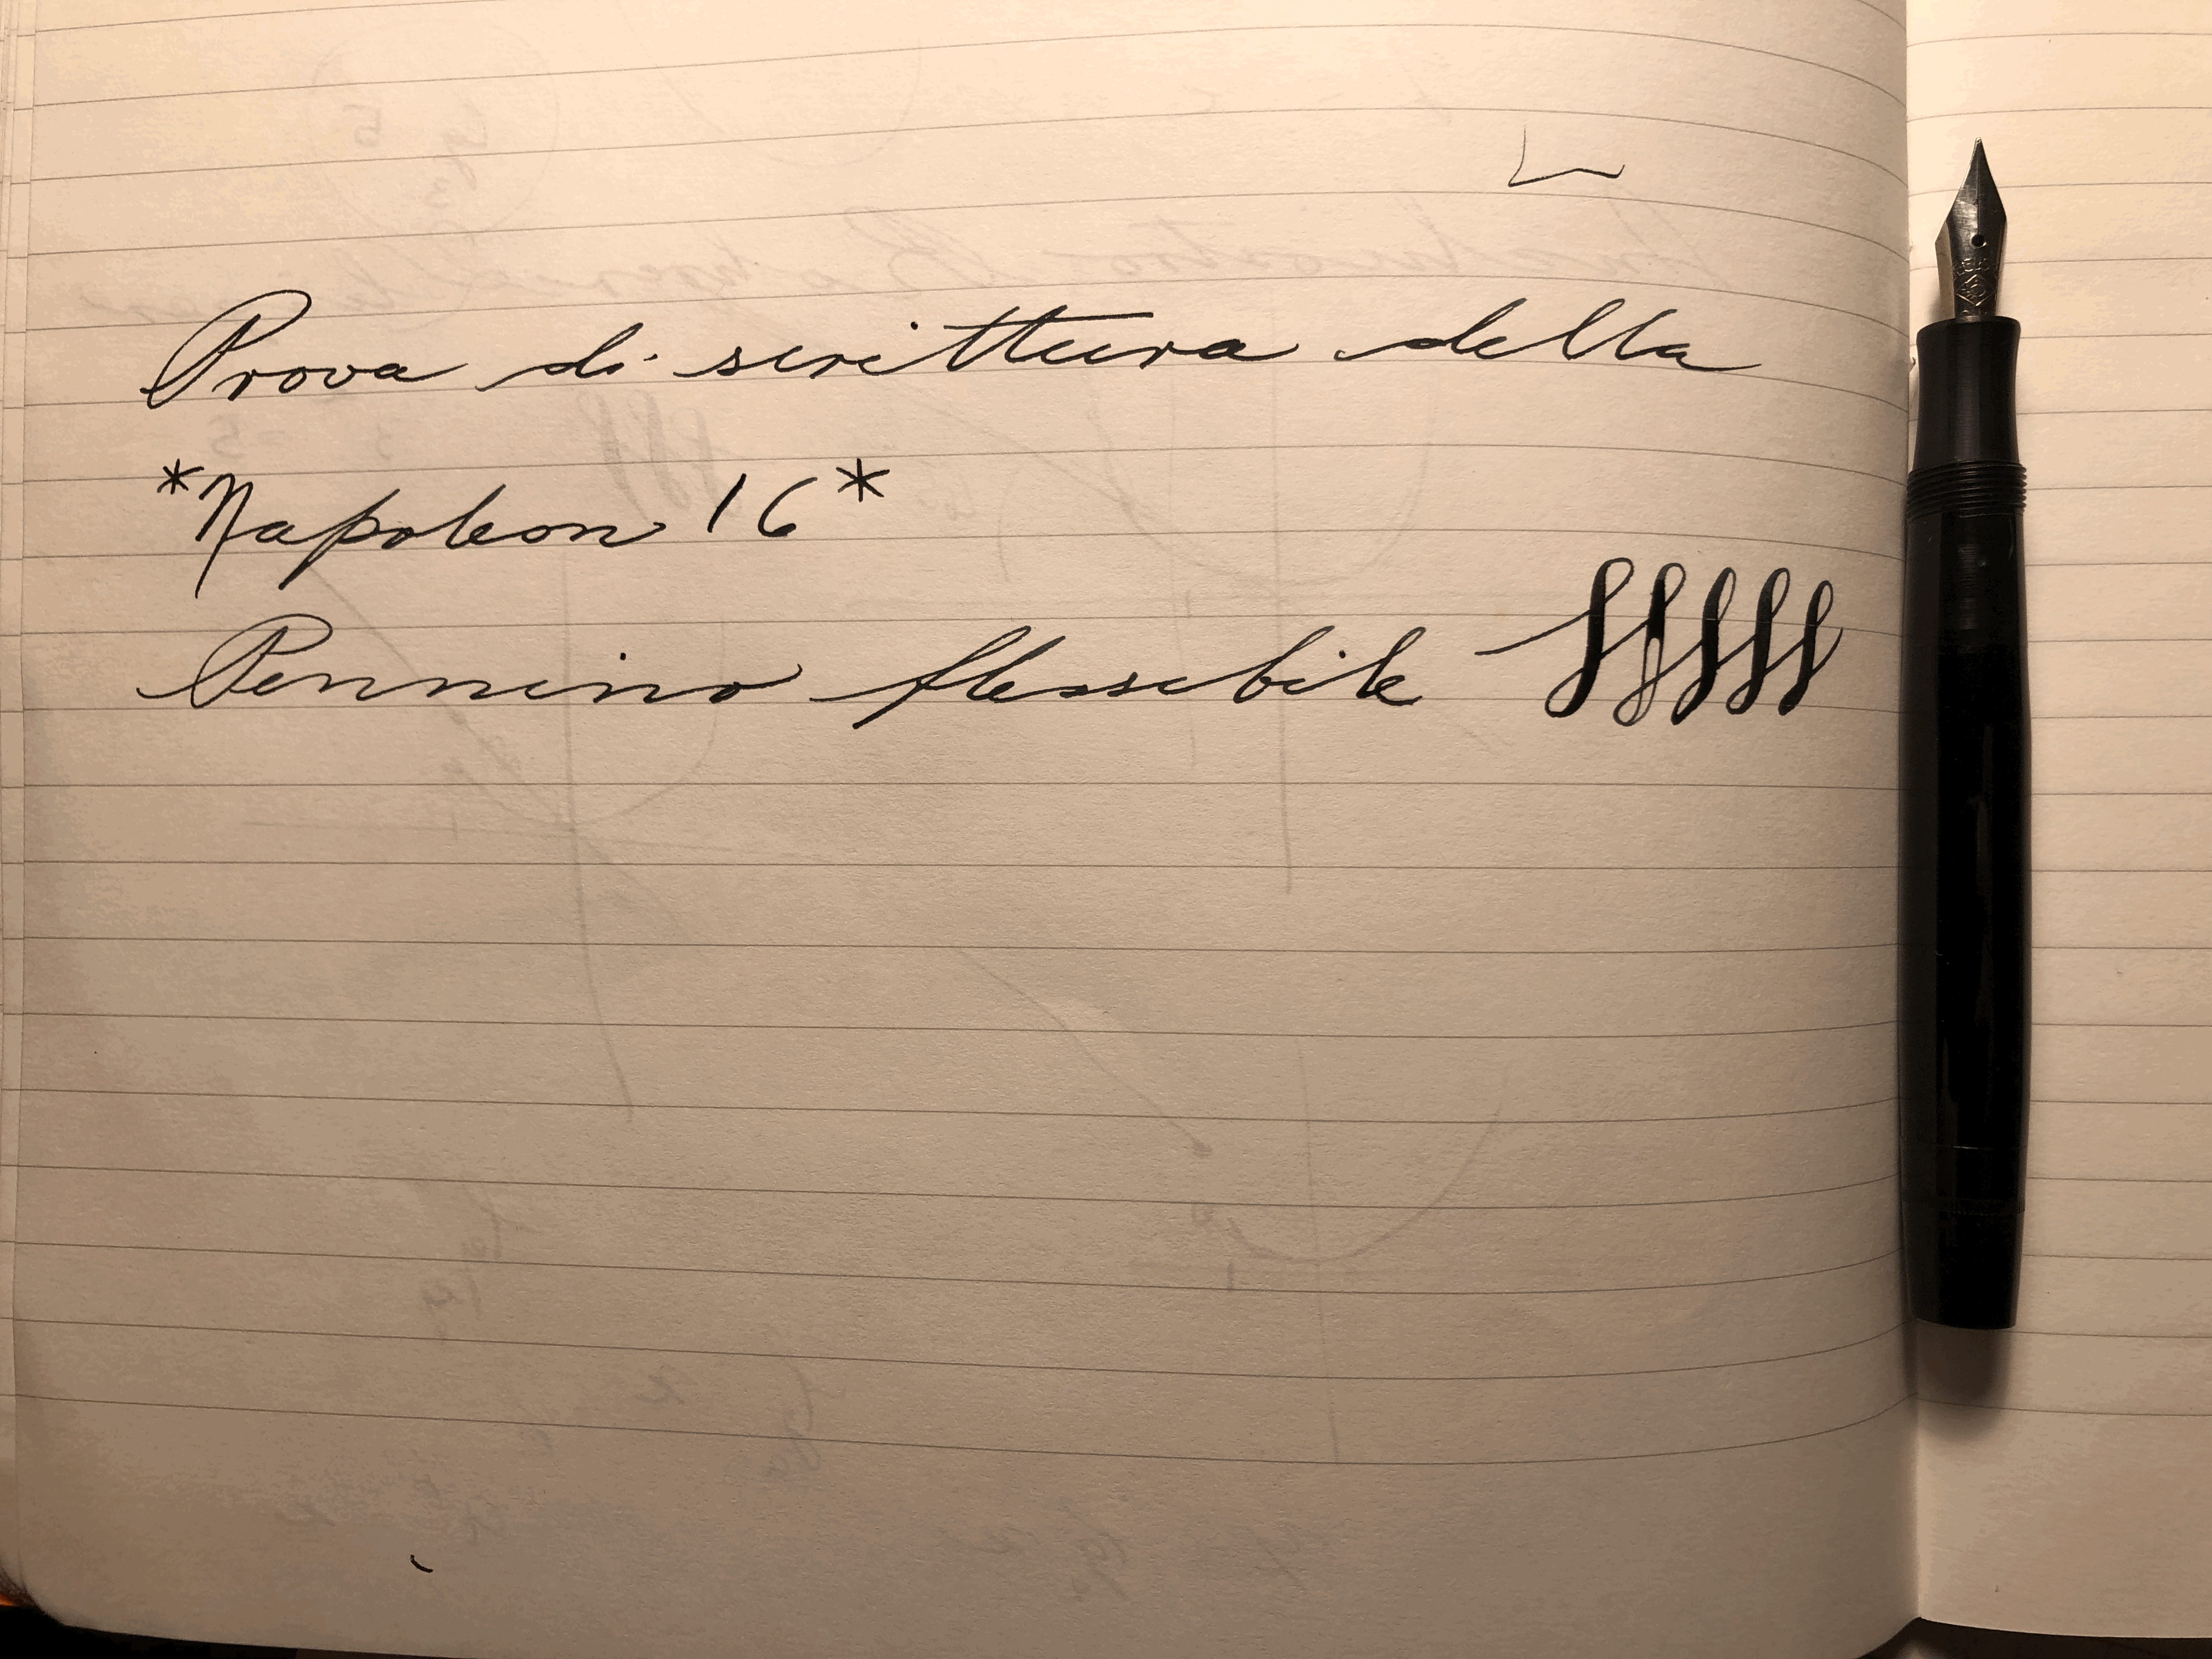 Prova di scrittura della
*Napoleon 16*
Pennino flessibile